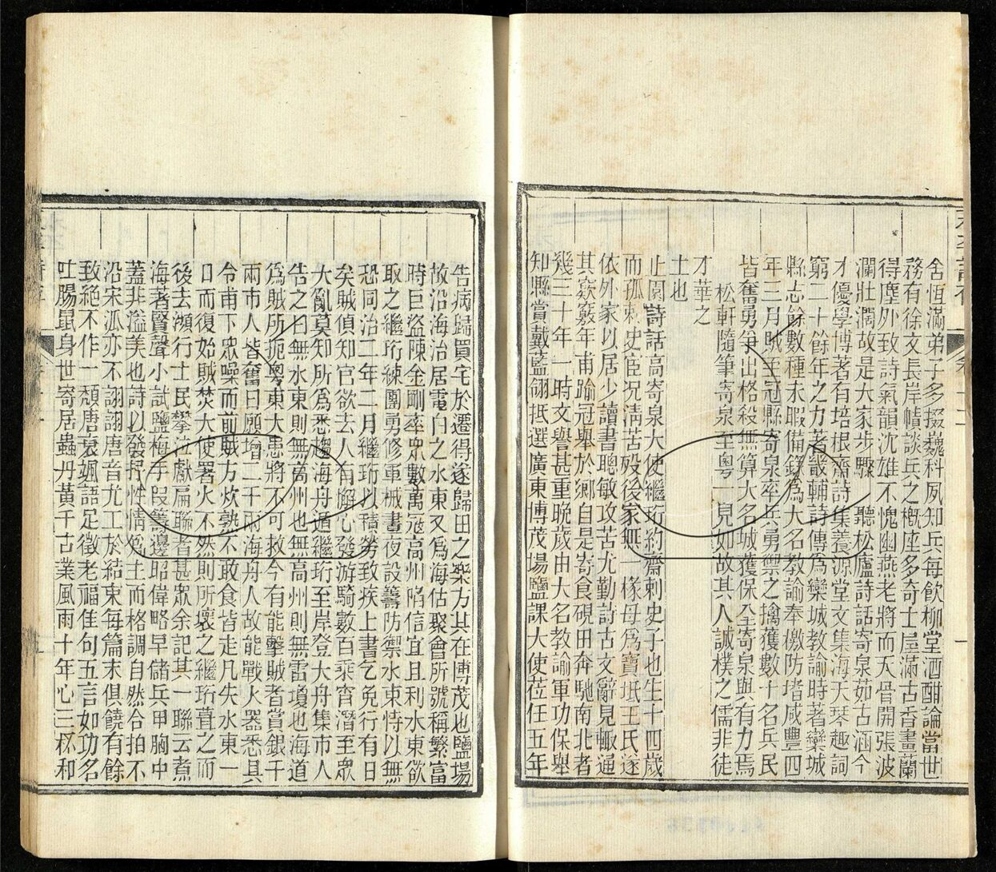 舍恆滿弟子多掇巍科夙知兵每飲柳堂酒酣論當世
務有徐文長岸幘談兵之概座多奇士屋滿古香畫蘭
得塵外致詩氣韻沈雄不愧幽燕老將而天骨開張波
瀾壯濶故是大家步驟　聽松廬詩話寄泉如古涵今
才優學博著有培根齋詩集養源堂文集海天琴趣詞
窮二十餘年之力著畿輔詩傳爲欒城教諭時著欒城
縣志餘數種未暇備錄爲大名教諭奉檄防堵咸豐四
年三月賊至冠縣寄泉率兵勇禦之擒獲數十名兵民
皆奮勇爭出格殺無算大名城獲保全寄泉與有力焉
松軒隨筆寄泉至粵一見如故其人誠樸之儒非徒
才華之
士也
止園詩話高寄泉大使繼珩約齋刺史子也生十四歲
而孤刺史宦况清苦殁後家無一椽母爲寶坻王氏遂
依外家以居少讀書聰敏攻苦尤勤詩古文辭見輒通
其窾竅年甫踰冠舉於鄉自是寄食硯田奔馳南北者
幾三十年一時文譽甚重晚歲由大名教諭軍功保舉
知縣賞戴藍翎抵選廣東博茂場鹽課大使莅任五年
告病歸買宅於遷得遂歸田之樂方其在博茂也鹽場
故沿海治居電白之水東又爲海估聚會所號稱繁富
時巨盜陳金剛率眾數萬寇高州陷信宜且利水東欲
取之繼珩練團勇修軍械晝夜設籌防禦水東恃以無
恐同治二年二月繼珩以積勞致疾上書乞免行有日
矣賊偵知官欲去人有懈心發游騎數百乘宵潛至眾
大亂莫知所爲悉趨海舟遁繼珩至岸登大舟集市人
告之曰無水東則無高州也無高州則無雷瓊也海道
爲賊所扼粵東大患將不可救今有能擊賊者賞銀千
兩市人皆奮曰願增二千兩海舟人故能戰火器悉具
令甫下眾噪而前賊方炊熟不敢食皆走凡失水東一
日而復始賊焚大使署火不然則所壞之繼珩葺之而
後去瀕行士民攀泣獻扁聯者甚眾余記其一聯云煮
海著賢聲小試鹽梅手段籌邊昭偉略早儲兵甲胸中
蓋非溢美也詩以發抒性情爲主而格調自然合拍不
沿宋派亦不詡詡唐音尤工於結束每篇末俱饒有餘
致絕不作一頹唐衰颯語足徵老福佳句五言如功名
吐腸鼠身世寄居蟲丹黃千古業風雨十年心三杯和